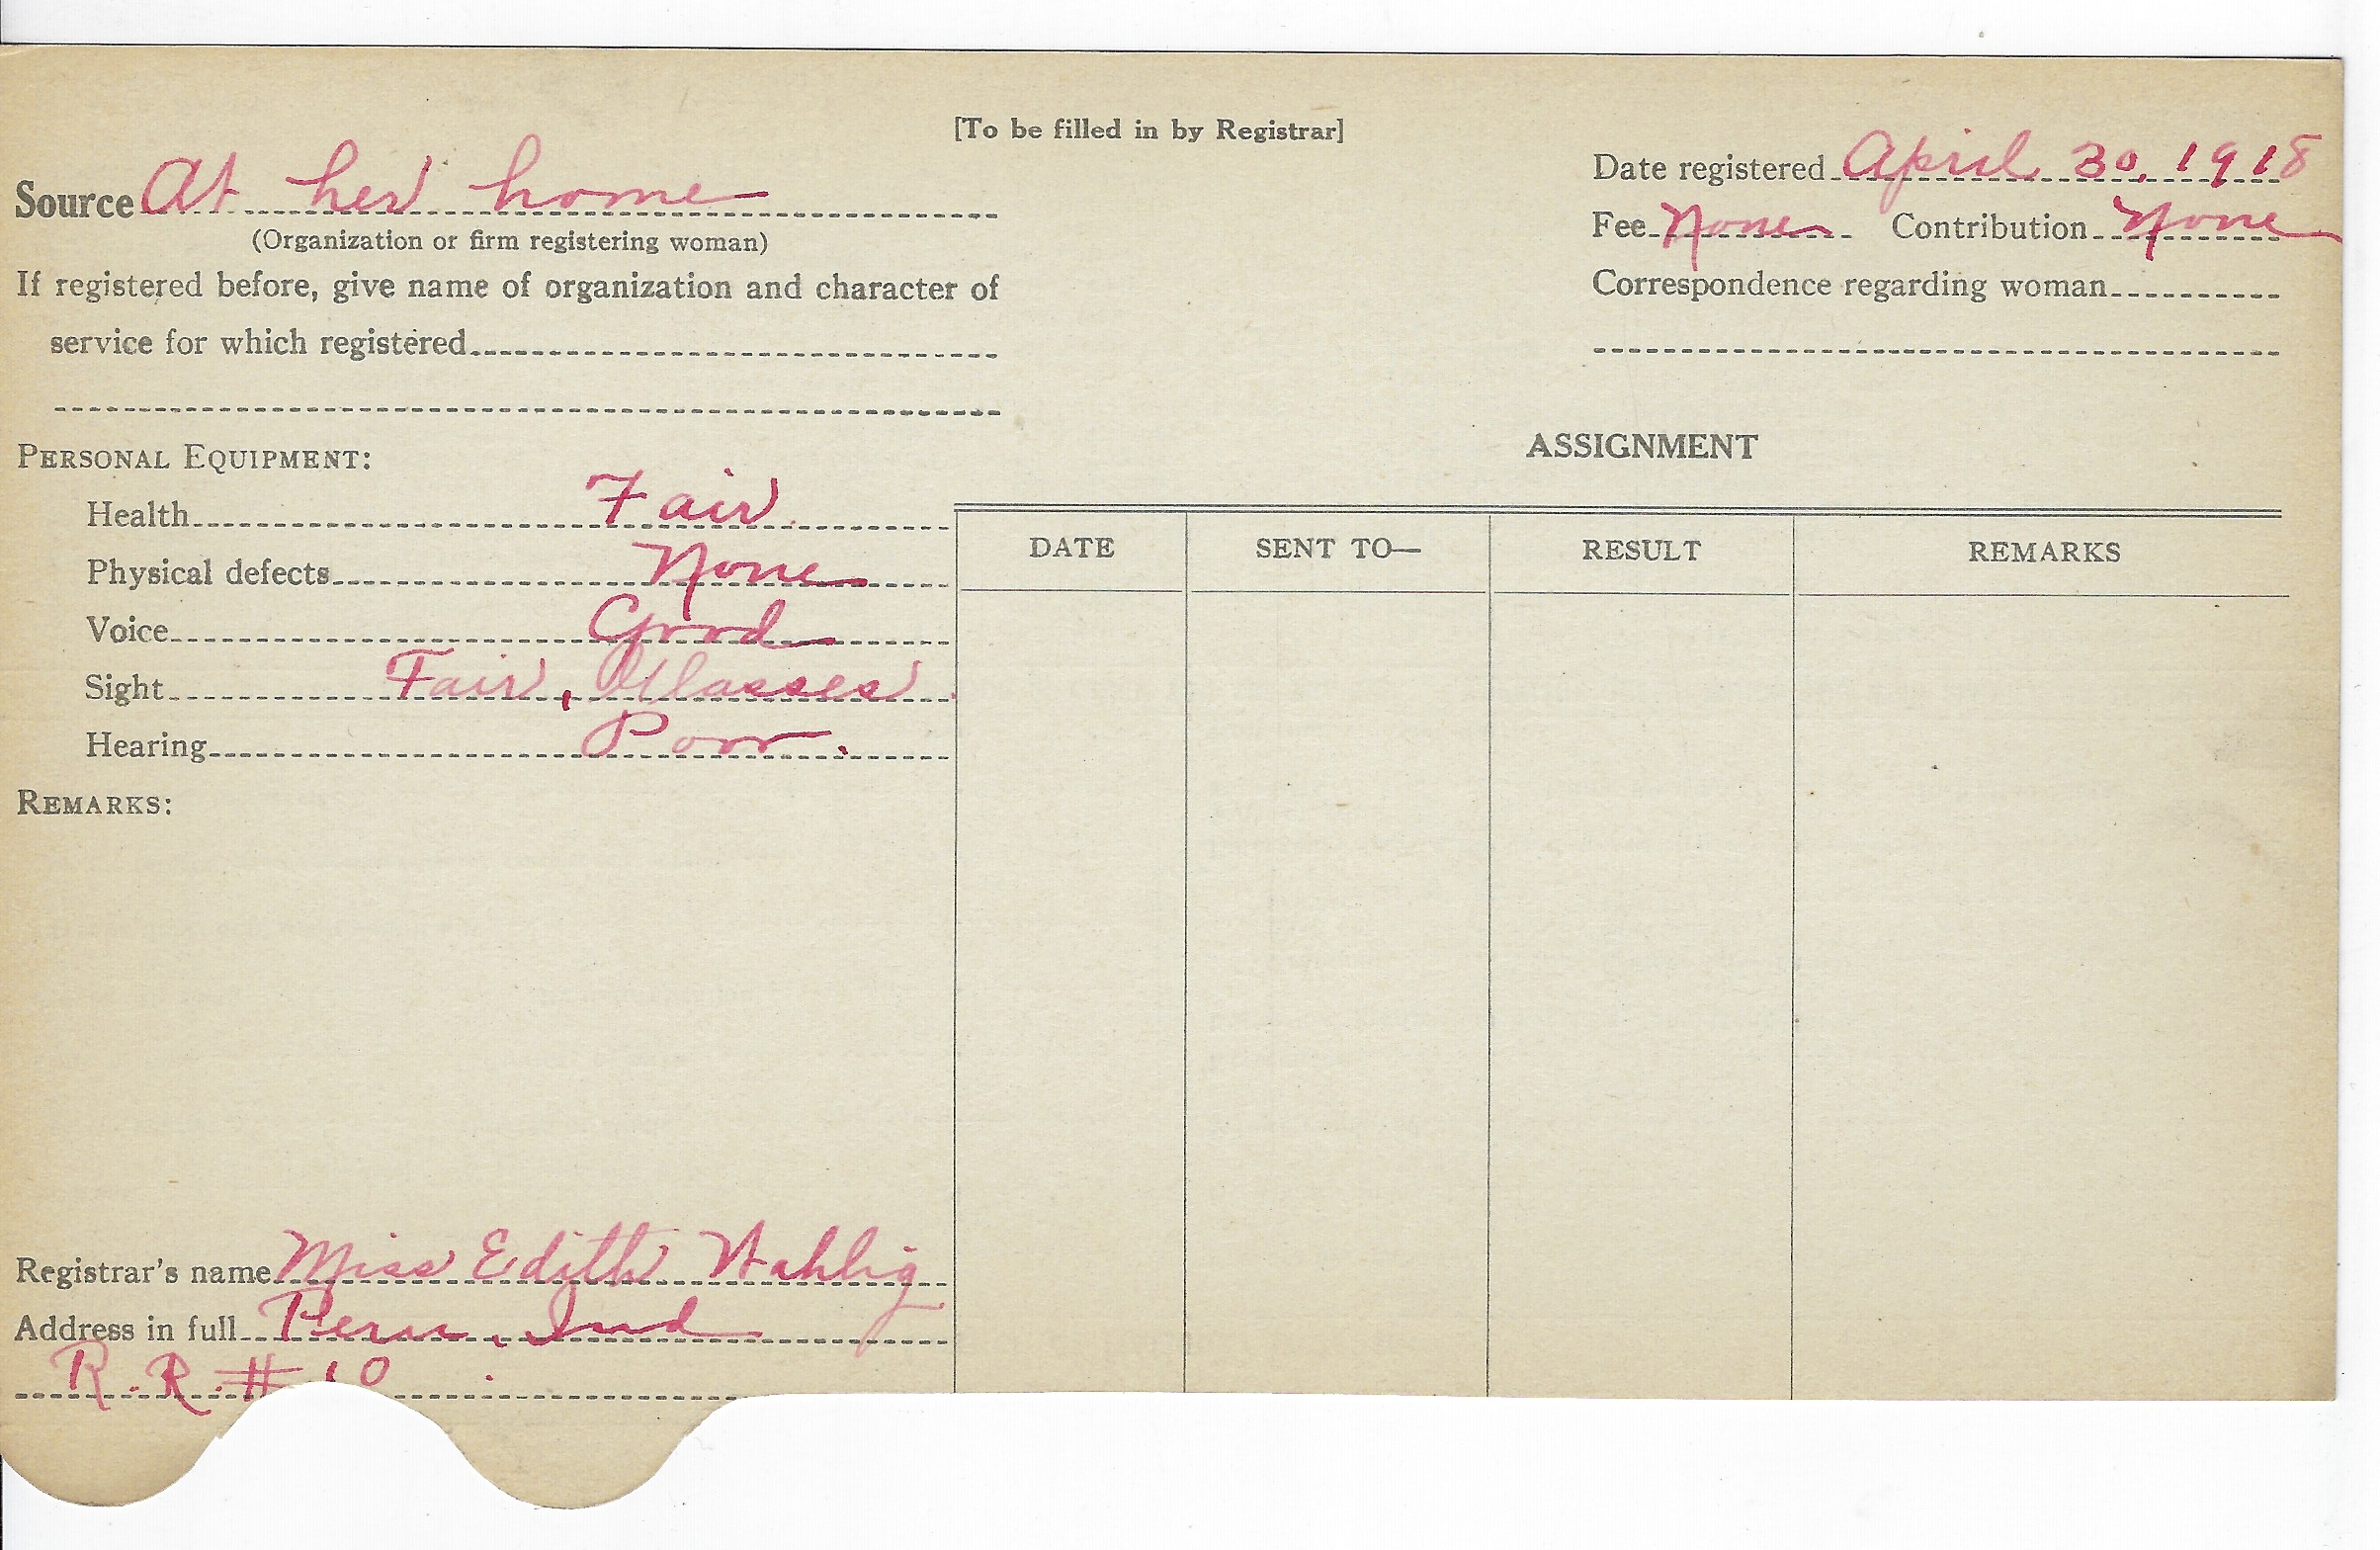 [To be filled in by Registrar]
Source At her home
(Organization or firm registering woman)
If registered before, give name of organization and character of
service for which registered
Date registered April 30, 1918
Fee None Contribution None
Correspondence regarding woman
PERSONAL EQUIPMENT:
Health Fair.
Physical defects None
Voice Good
Sight Fair, Glasses.
Hearing Poor.
REMARKS:
Registrar's name Miss Edith Wahlig
Address in full Peru, Ind
R. R. # 10
ASSIGNMENT
DATE SENT TO— RESULT REMARKS